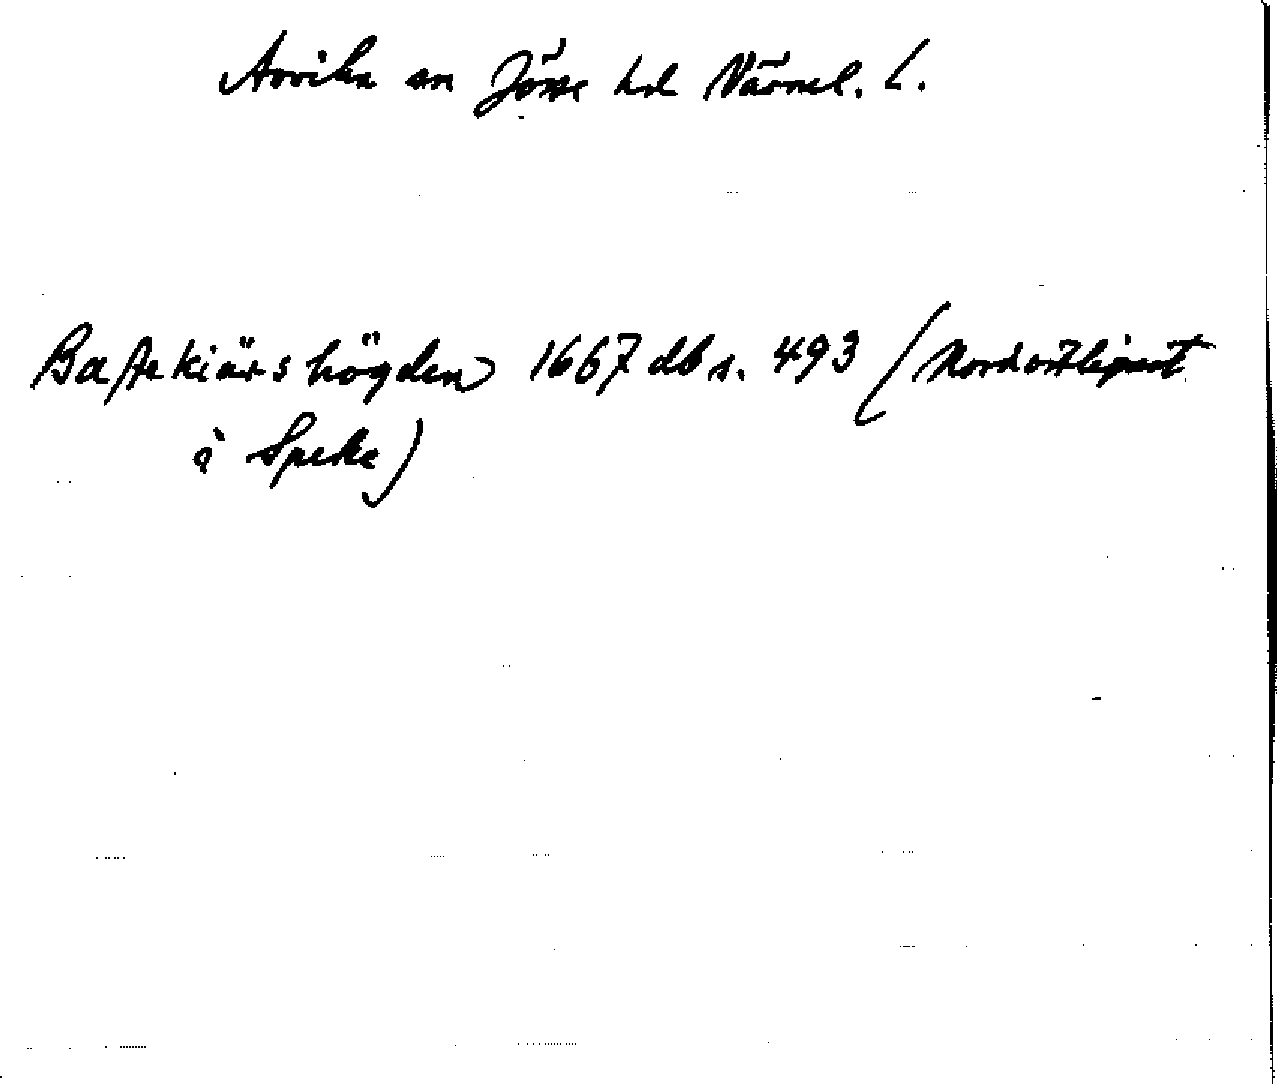 Arvika sn Jösse hd Värml. l.
Bastekiärshögden 1667 db s. 493 (Nordost
i Speke)